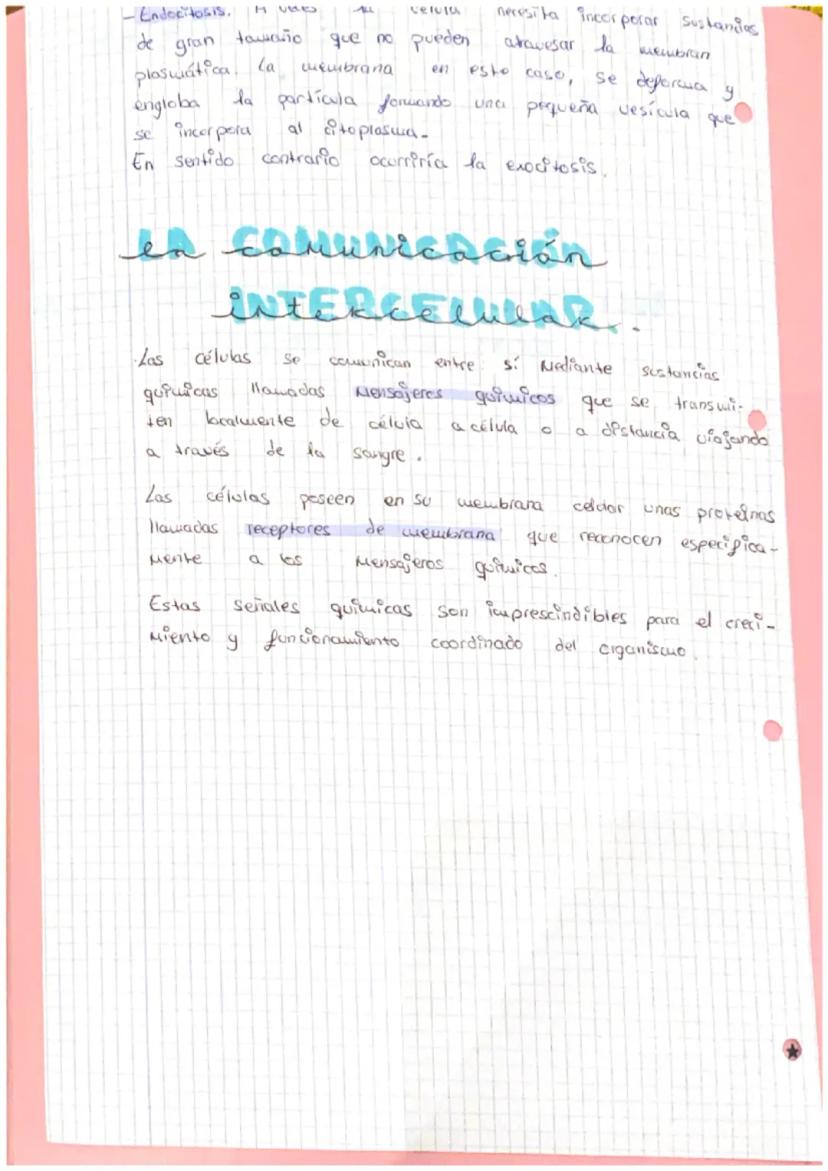 - Endocitosis. A veces la célula necesita incorporar sustancias
de gran tamaño que no pueden atravesar la membran
plasmática. La membrana en este caso, se deforma y
engloba la partícula formando una pequeña vesícula que
se incorpora al citoplasma.
En sentido contrario ocurriría la exocitosis.
LA COMUNICACIÓN
INTERCELULAR.
Las células se comunican entre sí Mediante sustancias
químicas llamadas Mensajeros químicos que se transmi-
ten localmente de célula a célula o a distancia viajando
a través de la sangre.
Las células poseen en su membrana celular unas proteínas
llamadas receptores de membrana que reconocen especifica-
mente a los Mensajeros químicos.
Estas señales químicas son imprescindibles para el creci-
Miento y funcionamiento coordinado del organismo.